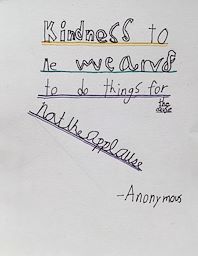 Kindness to
me means
to do things for
the
cause
not the applause
-Anonymous